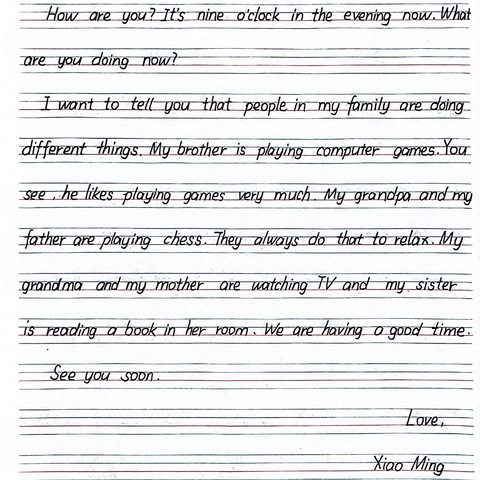 How are you? It's nine o'clock in the evening now. What
are you doing now?
I want to tell you that people in my family are doing
different things. My brother is playing computer games. You
see , he likes playing games very much. My grandpa and my
father are playing chess. They always do that to relax. My
grandma and my mother are watching TV and my sister
is reading a book in her room. We are having a good time.
See you soon.
Love,
Xiao Ming